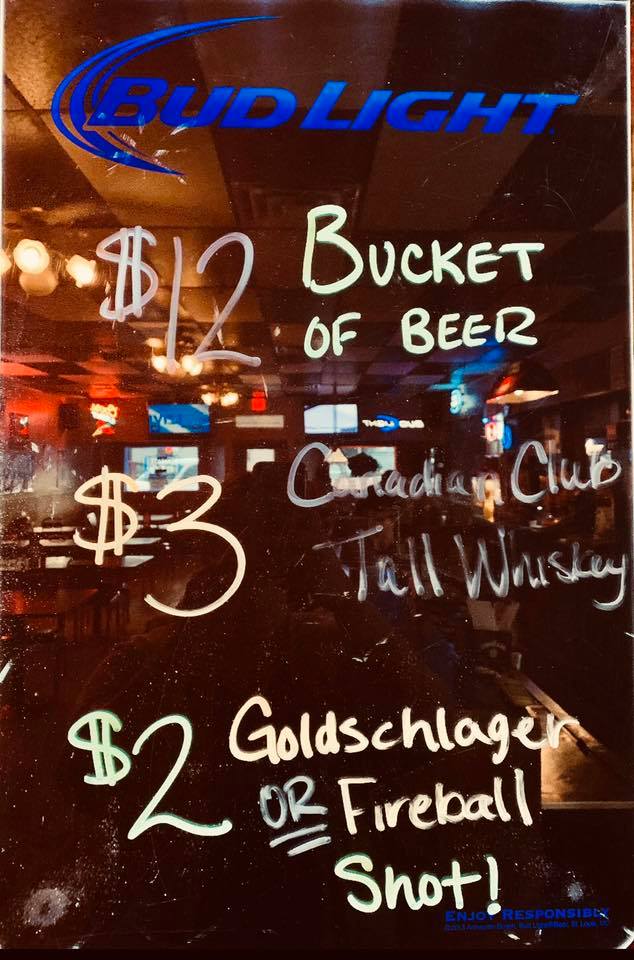 BUD LIGHT
$12 BUCKET
OF BEER
$3 Canadian Club
Tall Whiskey
$2 Goldschlager
OR Fireball
Shot!
ENJOY RESPONSIBLY